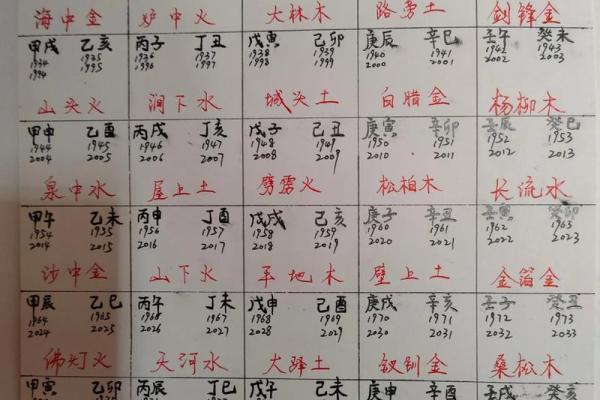 海中金 炉中火 大林木 路勇土 剑锋金
甲戌 乙亥 丙子 丁丑 戊寅 己卯 庚辰 辛巳 壬午 癸未
1934 1935 1936 1937 1938 1939 1940 1941 1942 1943
1994 1995 1996 1997 1998 1999 2000 2001 2002 2003
山头火 涧下水 城头土 白腊金 杨柳木
甲申 乙酉 丙戌 丁亥 戊子 己丑 庚寅 辛卯 壬辰 癸巳
1944 1945 1946 1947 1948 1949 1950 1951 1952 1953
2004 2005 2006 2007 2008 2009 2010 2011 2012 2013
泉中水 屋上土 劈雳火 松柏木 长流水
甲午 乙未 丙申 丁酉 戊戌 己亥 庚子 辛丑 壬寅 癸卯
1954 1955 1956 1957 1958 1959 1960 1961 1962 1963
2014 2015 2016 2017 2018 2019 2020 2021 2022 2023
沙中金 山下火 平地木 壁上土 金箔金
甲辰 乙巳 丙午 丁未 戊申 己酉 庚戌 辛亥 壬子 癸丑
1964 1965 1966 1967 1968 1969 1970 1971 1972 1973
2024 2025 2026 2027 2028 2029 2030 2031 2032 2033
佛灯火 天河水 大驿土 钗钏金 桑松木
甲寅 乙卯 丙辰 丁巳 戊午 己未 庚申 辛酉 壬戌 癸亥